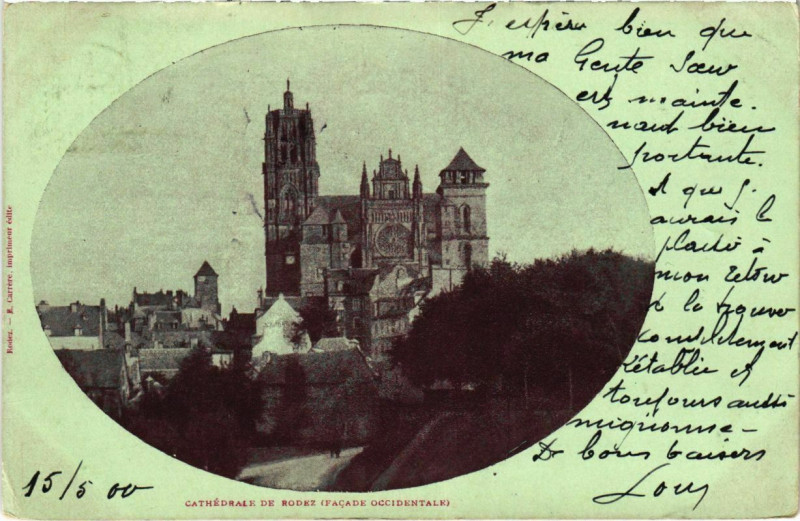 J'espère bien que
ma Gente Sœur
est mainte.
nant bien
portante.
et que j.
aurais le
plaisir à
mon retour
de la trouver
complètement
rétablie et
toujours aussi
mignonne -
De bons baisers
Lou
15/5 00
CATHÉDRALE DE RODEZ (FAÇADE OCCIDENTALE)
Rodez. — E. Carrère, imprimeur édite